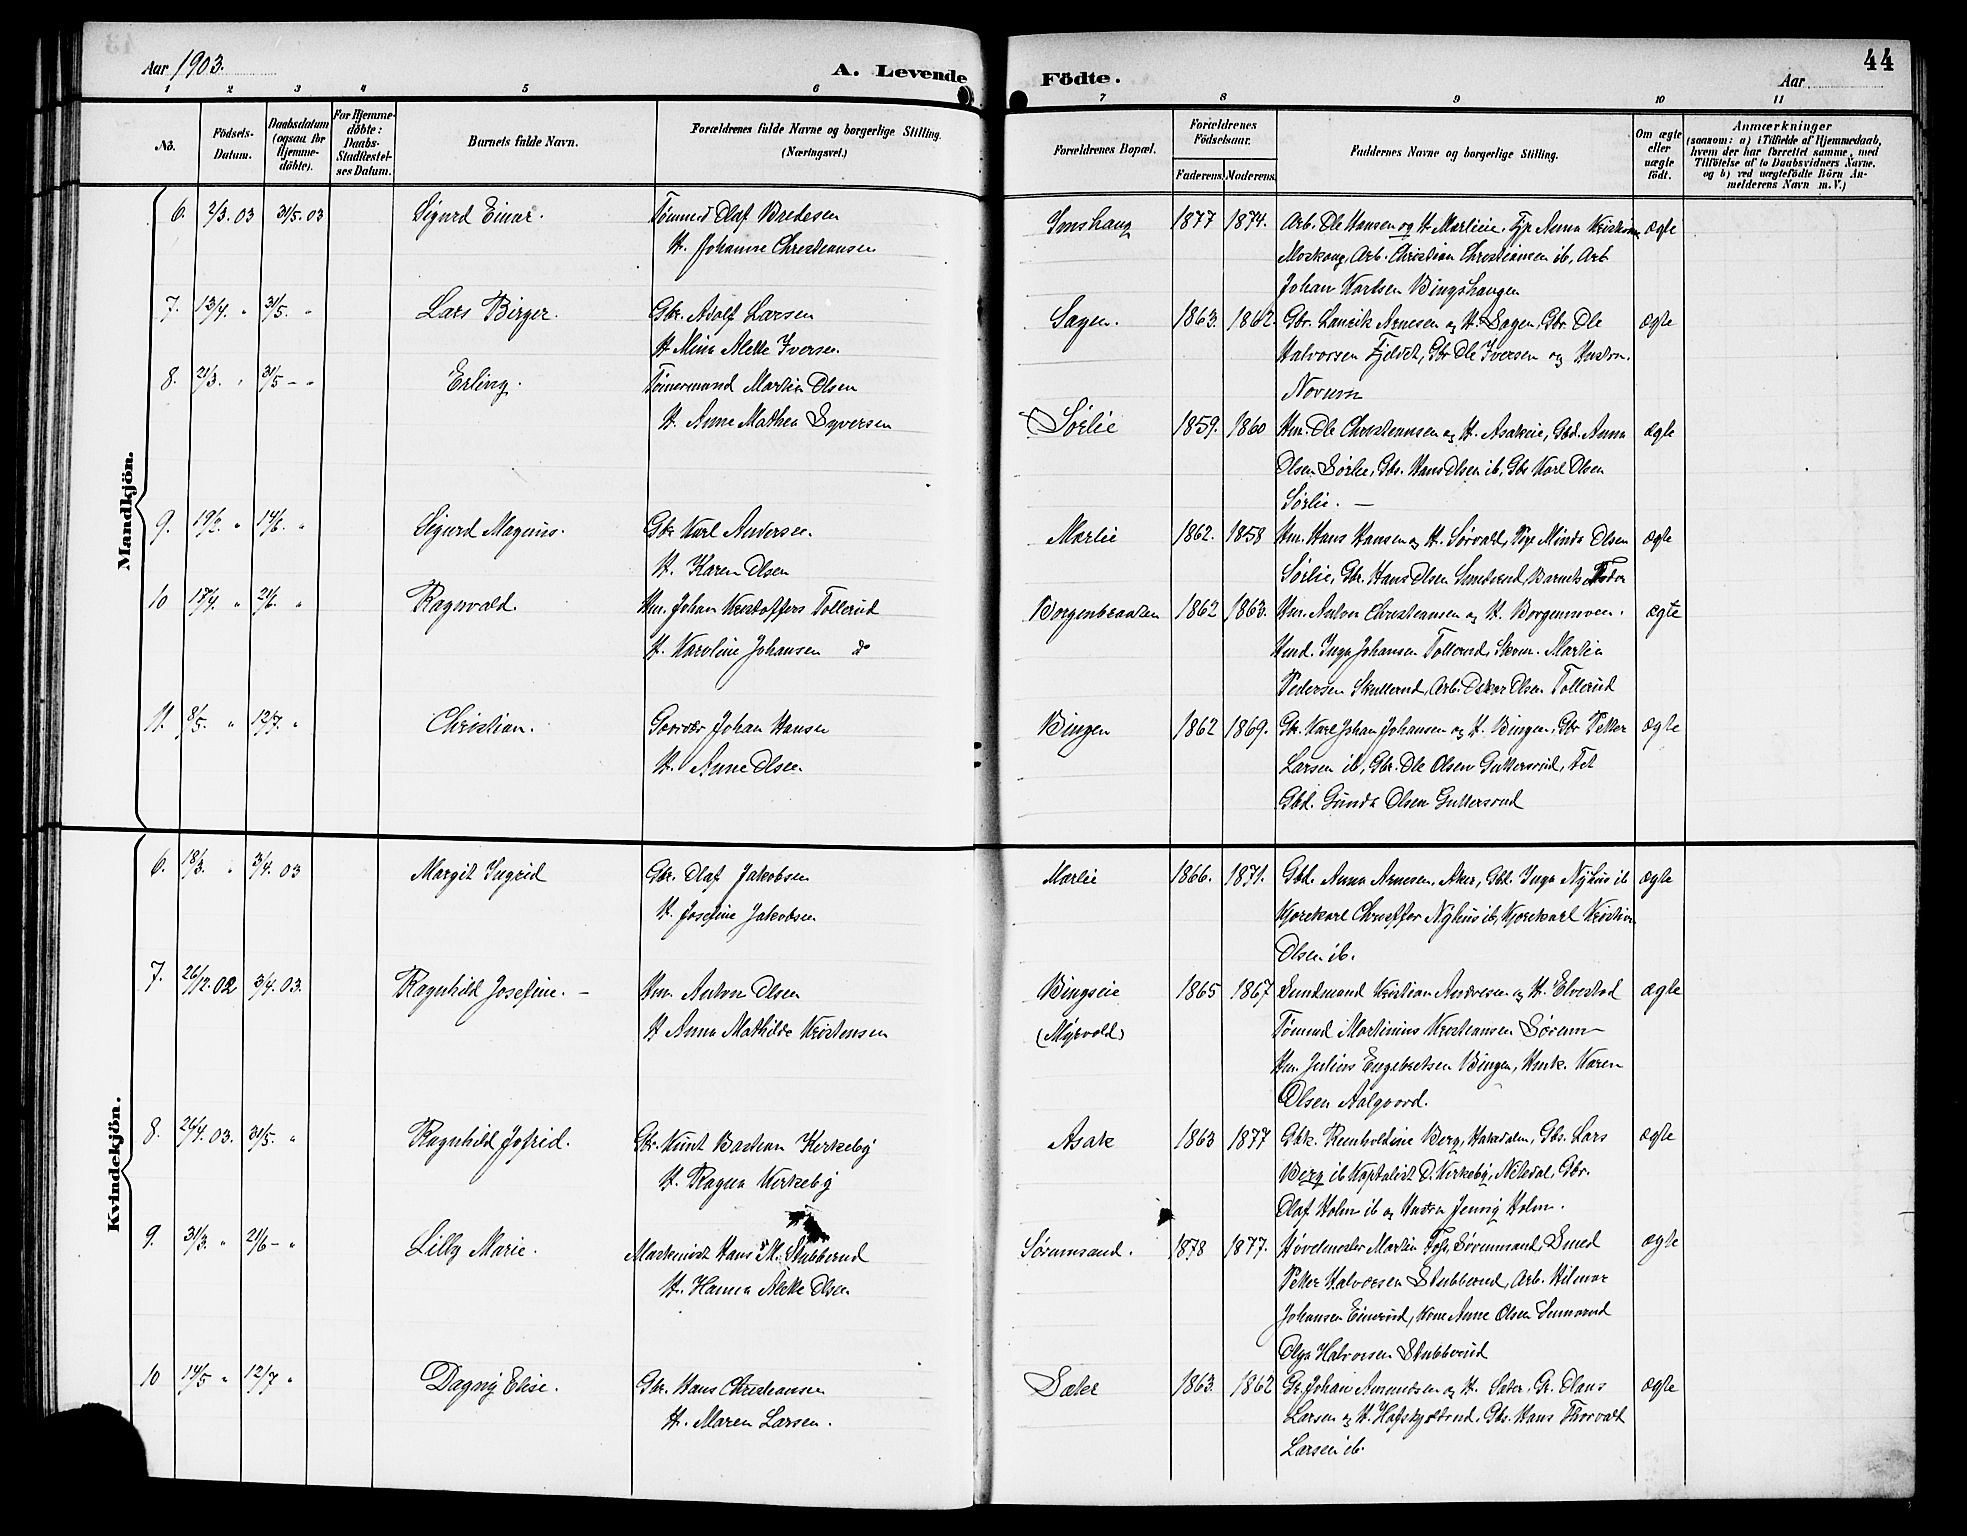 44
Aar 1903.
A. Levende Födte.
Aar
1 2 3 4 5 6 7 8 9 10 11
No.
Födsels-Datum.
Daabsdatum (ogsaa for Hjemme-döbte).
For Hjemme-döbte: Daabs-Stadfæstel-ses Datum.
Barnets fulde Navn.
Forældrenes fulde Navne og borgerlige Stilling. (Næringsvei.)
Forældrenes Bopæl.
Forældrenes Födselsaar.
Faderens. Moderens.
Faddernes Navne og borgerlige Stilling.
Om ægte eller uægte födt.
Anmærkninger
(saasom: a) i Tilfælde af Hjemmedaab,
hvem der har forrettet samme, med
Tilföielse af to Daabsvidners Navne,
og b) ved uægtefödte Börn An-
melderens Navn m. V.)
Mandkjön.
6. 2/3. 03 31/5. 03 Sigurd Einar. Tømmerm Olaf Bredesen Imshaug 1877 1874. Arb. Ole Hansen og H. Marlieie, Pige Anna Kristians ægte
H. Johanne Christiansen Moskaug, Arb. Christian Christiansen ib, Arb
Johan Karlsen Bingshaugen
7. 13/4. " 31/5. " Lars Birger. Gbr. Adolf Larsen Sagen. 1863. 1862. Gbr. Arnesen og H. Sagen, Gbr. Ole ægte
H. Mina Alette Iversen Halvorsen Fjeldet, Gbr Ole Iversen og Hustru
Novum
8. 21/3. " 31/5 - " Erling. Tømermand Martin Olsen
H. Anne Mathea Syversen Sørlie 1859. 1860 Hm. Ole Christiansen og H. Asakeie, Gbd. Anna ægte
Olsen Sørlie, Gbs. Hans Olsen ib, Gbs Karl Olsen
Sørlie. —
9. 19/2. " 14/6. " Sigurd Magnus. Gbr Karl Andersen Mærlie 1862. 1858 Hm. Hans Hansen og H. Sørvald, Pige Minda Olsen ægte
H. Karen Olsen Sørlie, Gbr. Hans Olsen, Barnets Fader
10 17/4. " 21/6. " Ragnvald. Hm. Johan Kristoffers Tollerud Borgenbraaten 1862 1863. Hm. Anton Christiansen og H. Borgenmoen. ægte
H. Karoline Johansen do Hmd. Inga Johansen Tollerud, Skom. Martin
Pedersen Skullerud, Arb. Oskar Olsen Tollerud
11. 8/5. " 12/7. " Christian. Gaardbr Johan Hansen Bingen 1862 1869. Gbr. Karl Johan Johansen og H. Bingen, Gbr Petter ægte
H. Anne Olsen Larsen ib, Gbr. Ole Olsen Guttersrud,
Gbd. Gunda Olsen Guttersrud
Kvindekjön.
6. 18/3. " 3/4. 03 Margit Ingrid Gbr. Olaf Jakobsen Mærlie 1866. 1871. Gbd. Anna Arnesen, Aker, Gbd. Inga Nyhus ib ægte
H. Josefine Jakobsen Kjørekarl Christoffer Nyhus ib, Kjørekarl Kristian
Olsen ib.
7. 26/12. 02 3/4. 03. Ragnhild Josefine. - Hm. Anton Olsen Bingseie 1865 1867 Sundmand Kristian Andresen og H. Elvestad ægte
H. Anna Mathilde Kristensen (Myrvold) Tømmd Martinius Kristiansen Sørum
Hm. Julius Engebretsen Bingen, Hmk. Karen
Olsen Aalgaard.
8. 26/4. 03. 31/5. " Ragnhild Jofrid. Gbr. Knut Bastian Kirkeby Asak 1863 1877 Gbk. Reinholdine Berg, Hakadalen, Gbs. Lars ægte
H. Ragna Kirkeby Berg ib Kaptalist D. Kirkeby, Nitedal, Gbr.
Olaf Holm ib og Hustru Jenny Holm.
9. 31/3. " 21/6 - " Lilly Marie. Maskinist Hans M. Stubberud Sørumsand. 1878 1877. Høvelmester Martin Foss, Sørumsand, Smed ægte
H. Hanna Alette Olsen Petter Halvorsen Stubberud, Arb. Hilmar
Johansen Einerud, Kone Anne Olsen
Olga Halvorsen Stubberud
10 14/5 " 12/7 " Dagny Elise. Gbr. Hans Christiansen Sæter 1863. 1862 Gr. Johan Amundsen og H. Sæter, Gr. Olaus ægte
H. Maren Larsen. Larsen og H. Hafskjoldrud, Gbs. Hans Thorvald
Larsen ib.